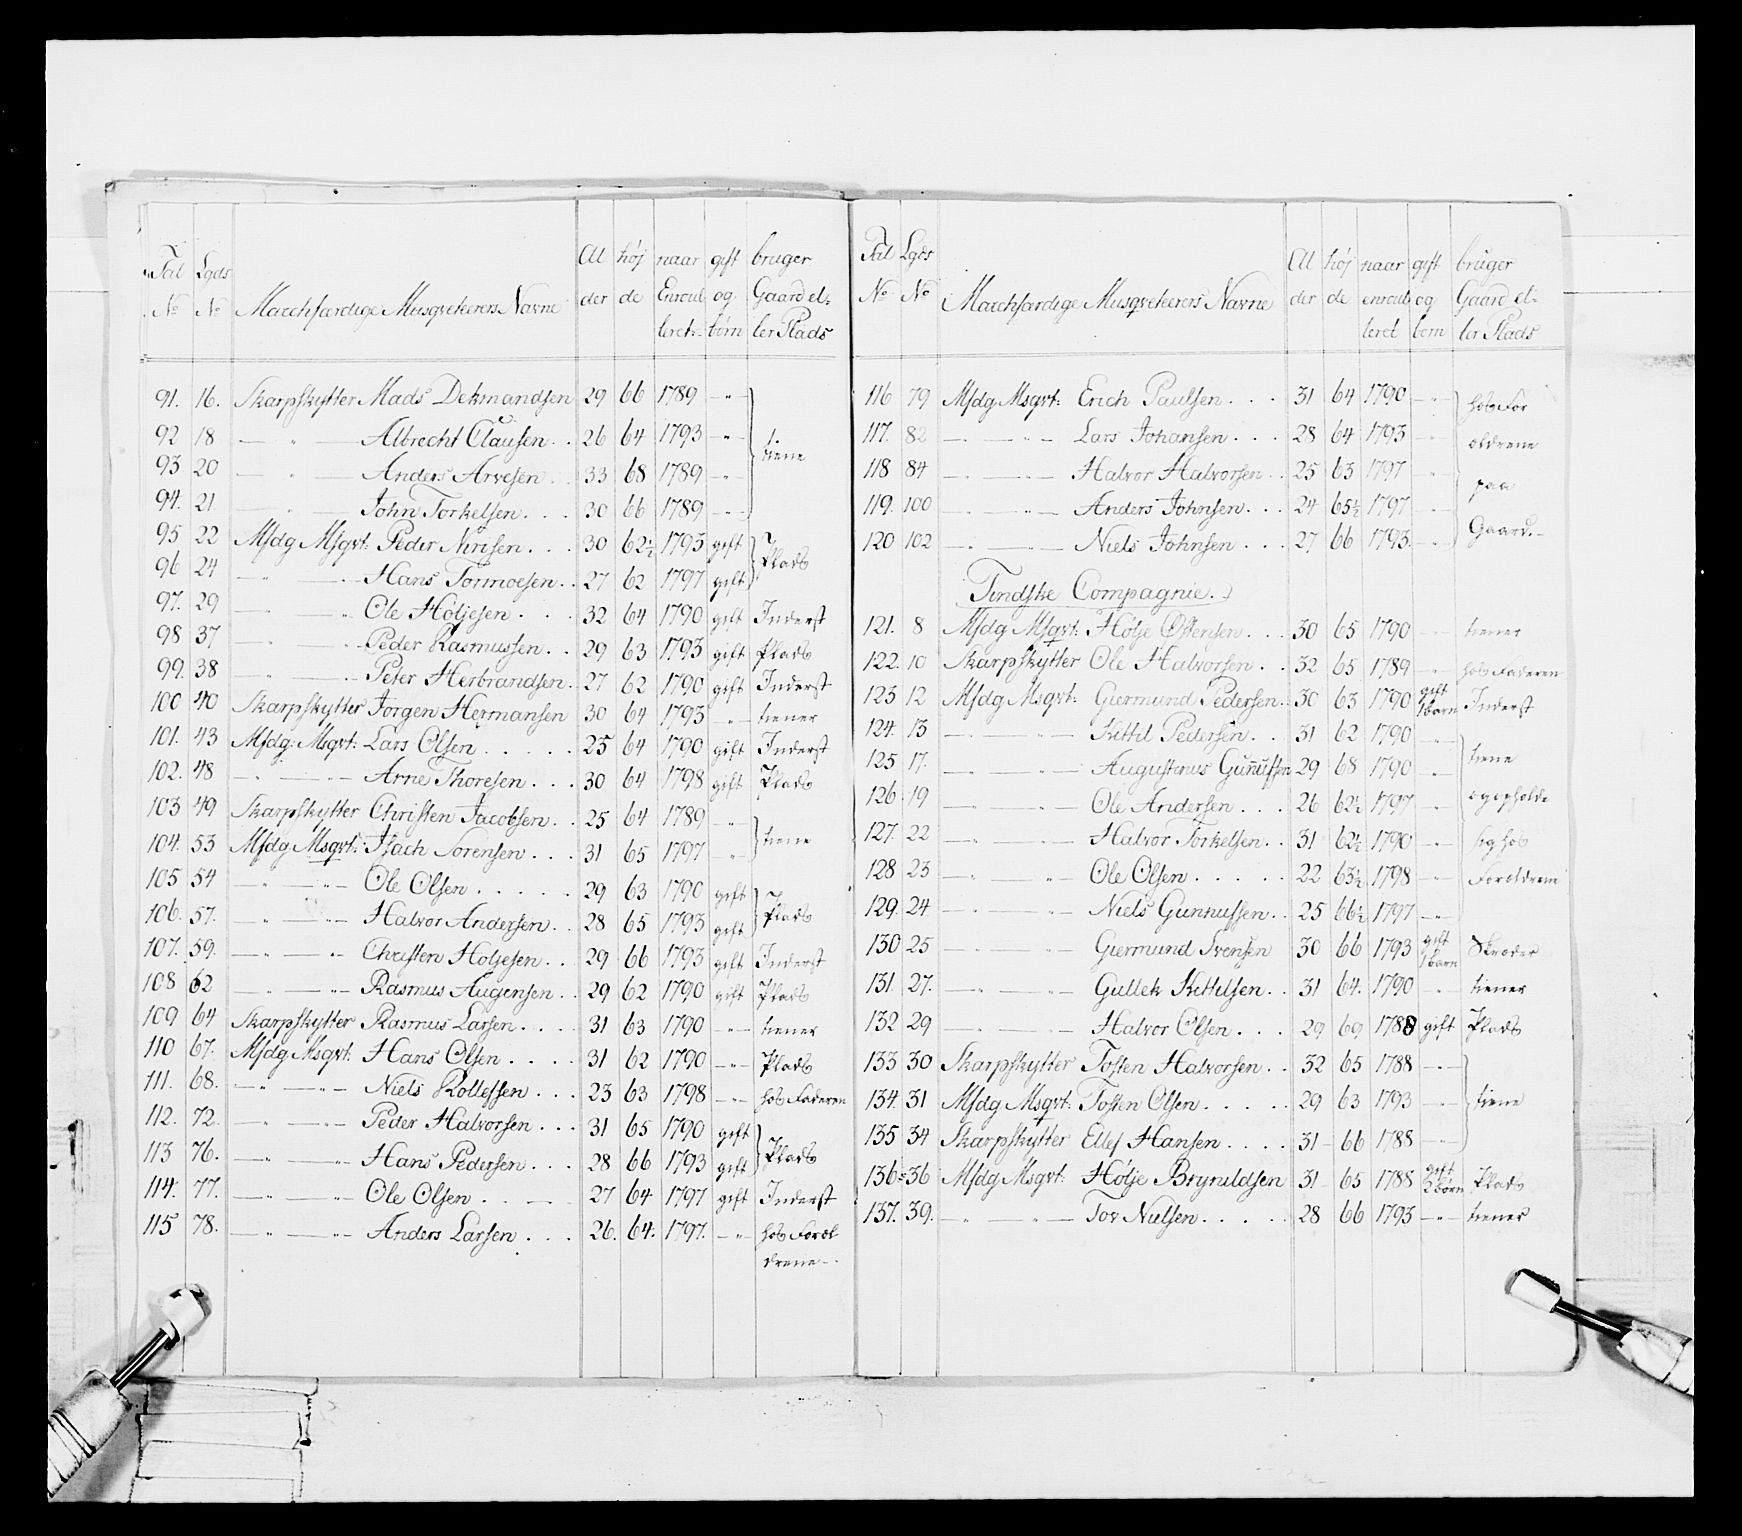 Tal Lgds Al høj naar gift bruger
No No Marchfærdige Musqveterers Navne der de Enroul og Gaard el-
leret børn ler Plads
91. 16. Skarpskytter Mads Dekmandsen 29 66 1789 -"-
92 18 — " — Albrecht Clausen . . 26 64 1793 -"-
tiene
93. 20 — " — Anders Arvesen . . 33 68 1789 -"-
94. 21 — " — John Torkelsen . . . 30 66 1789 -"-
95 22 Msdg Msqvt: Peder Nirisen . . . 30 62½ 1793 gift
Plads
96 24 — " — " — Hans Tormoesen . . 27 62 1797 gift
97. 29 — " — " — Ole Höljesen . . . 32 64 1790 gift Inderst
98 37 — " — " — Peder Rasmussen . . 29 63 1793 gift Plads
99. 38 — " — " — Peter Herbrandsen . 27 62 1790 gift Inderst
100 40 Skarpskytter Jörgen Hermansen 30 64 1793 -"- tiener
101. 43 Msdg: Msqvt: Lars Olsen . . . . . 25 64 1790 gift Inderst
102. 48 — " — " — Arne Thoresen . . . 30 64 1798 gift Plads
103 49 Skarpskytter Christen Jacobsen . . 25 64 1789 -"-
tiene
104. 53 Msdg Msqvt: Isach Sörensen . . . 31 65 1797 -"-
105 54 — " — " — Ole Olsen . . . . . 29 63 1790 gift
Plads
106. 57. — " — " — Halvor Andersen . . 28 65 1793 gift
107. 59. — " — " — Christen Holjesen . . 29 66 1793 gift Inderst
108 62 — " — " — Rasmus Augensen . . 29 62 1790 gift Plads
109 64 Skarpskytter Rasmus Larsen . . . . 31 63 1790 -"- tiener
110 67. Msdg Msqvt: Hans Olsen . . . . 31 62 1790 -"- Plads
111. 68. — " — " — Niels Rollefsen . . . 23 63 1798 -"- hos Faderen
112. 72. — " — " — Peder Halvorsen . . . 31 65 1790 gift
Plads
113 76. — " — " — Hans Pedersen . . . 28 66 1793 gift
114. 77. — " — " — Ole Olsen . . . — 27 64 1797 gift Inderst
115 78. — " — " — Anders Larsen . . . 26. 64. 1797. -"- hos Foræl
drene -.
Tal Lgds Al høj naar gift bruger
No No Marchfærdige Musqveterers Navne der de enroul og Gaard el-
leret børn ler Plads
116 79 Msdg Msqvt: Erich Paulsen . . . 31 64 1790 -"- hos For
117. 82 — " — " — Lars Johansen . . . 28 64 1793 -"- ældrene
118 84 — " — " — Halvor Halvorsen . . 25 63 1797 -"- paa
119. 100 — " — " — Anders Johnsen . . . 24 65½ 1797 -"-
120 102 — " — " — Niels Johnsen . . . 27 66 1793. -"- Gaard. -
Tindske Compagnie.
121. 8 Msdg Msqvt: Hölje Östensen . . . 30 65 1790 -"- tiener
122. 10 Skarpskytter Ole Halvorsen . . 32 65 1789 -"- hos Faderen
123 12 Msdg Msqvt: Giermund Pedersen . . 30 63 1790 gift 1 barn Inderst
124. 13 — " — " — Kittil Pedersen . . 31 62 1790 -"-
125 17. — " — " — Augustinus Gunnufsen 29 68 1790 -"- tiene
126 19 — " — " — Ole Andersen . . . 26 62½ 1797 -"- og opholde
127. 22 — " — " — Halvor Torkelsen . . 31 62½ 1790 -"- sig hos
128 23 — " — " — Ole Olsen . . . . . 22 63½ 1798 -"- Forældrene
129. 24 — " — " — Niels Gunnufsen . . 25 66½ 1797 -"-
130 25 — " — " — Giermund Svensen 30 66 1793 gift 1 barn Skræder
131. 27. — " — " — Gullek Kittilsen . . 31 64. 1790 -"- tiener
132 29 — " — " — Halvor Olsen . . . 29 69 1788 gift Plads
133 30 Skarpskytter Tosten Halvorsen . . 32 65 1788 -"-
134. 31 Msdg Msqvt: Tosten Olsen . . . . . 29 63 1793 -"- tiene
135 34 Skarpskytter Ellef Hansen . . . . 31- 66 1788 -"-
136 36 Msdg Msqvt: Hölje Brynildsen 31- 65 1788 gift 2 børn Plads
137. 39. — " — " — Tov Nielsen . . . . . 28 66 1793 -"- tiener